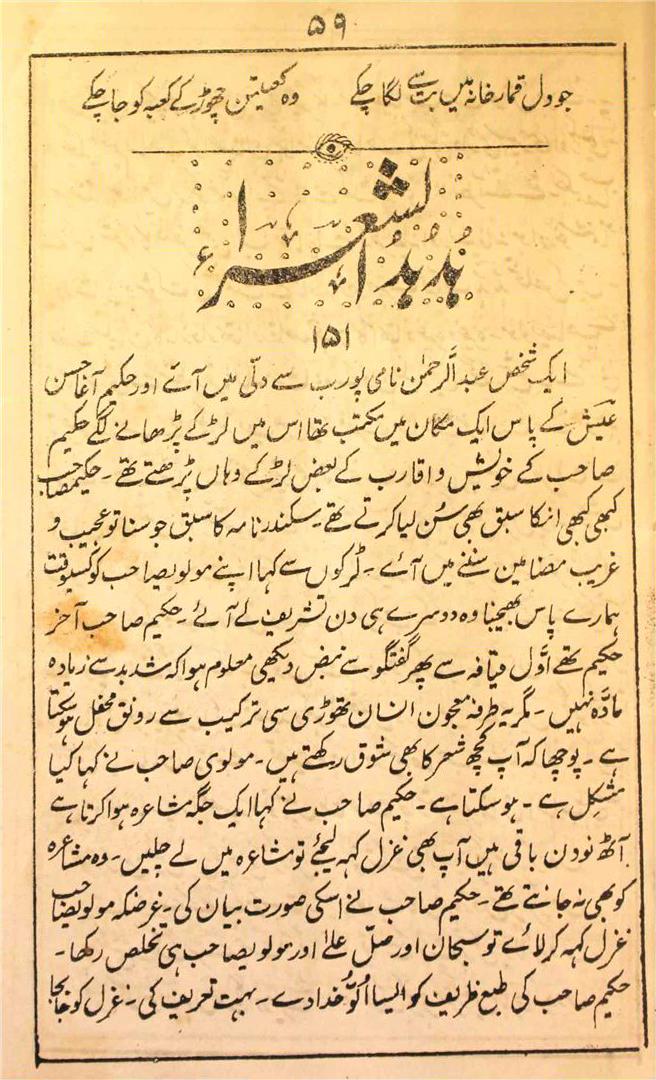 ۵۹
جو دل قمار خانہ میں بت سے لگا چکے وہ کعبتین چھوڑ کے کعبہ کو جا چکے
ہُدہُد الشعرا
۱۵۱
ایک شخص عبدالرحمٰن نامی پورب سے دلّی میں آئے اور حکیم آغا حسن
عیش کے پاس ایک مکان میں مکتب تھا اس میں لڑکے پڑھانے لگے حکیم
صاحب کے خویش و اقارب کے بعض لڑکے وہاں پڑھتے تھے۔ حکیمصاحب
کبھی کبھی انکا سبق بھی سُن لیا کرتے تھے۔ سکندر نامہ کا سبق جو سنا تو عجیب و
غریب مضامین سننے میں آئے۔ لڑکوں سے کہا اپنے مولویصاحب کو کسیوقت
ہمارے پاس بھیجنا وہ دوسرے ہی دن تشریف لے آئے۔ حکیم صاحب آخر
حکیم تھے اوّل قیافہ سے پھر گفتگو سے نبض دیکھی معلوم ہوا کہ شد بد سے زیادہ
مادّہ نہیں۔ مگر یہ طرفہ معجون انسان تھوڑی سی ترکیب سے رونق محفل ہو سکتا
ہے۔ پوچھا کہ آپ کچھ شعر کا بھی شوق رکھتے ہیں۔ مولوی صاحب نے کہا کیا
مشکل ہے۔ ہو سکتا ہے۔ حکیم صاحب نے کہا ایک جگہ مشاعرہ ہوا کرتا ہے
آٹھ نو دن باقی ہیں آپ بھی غزل کہہ لیجئے تو مشاعرہ میں لے چلیں۔ وہ مشاعرہ
کو بھی نہ جانتے تھے۔ حکیم صاحب نے اسکی صورت بیان کی۔ غرضکہ مولویصاحب
غزل کہہ کر لائے تو سبحان اور صلّ علےٰ اور مولویصاحب ہی تخلص رکھا۔
حکیم صاحب کی طبع ظریف کو ایسا اُلّو خدا دے۔ بہت تعریف کی۔ غزل کو جابجا